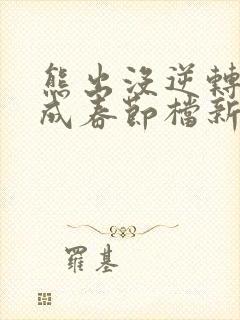 熊出沒逆轉
成春節檔新
羅基